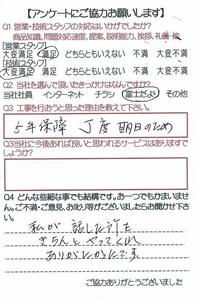 【アンケートにご協力お願いします】
Q1 営業・技術スタッフの対応はいかがでしたか?
商品知識、問題対応速度、提案、説明能力、挨拶、礼儀 他
[営業スタッフ]
大変満足 満足 どちらともいえない 不満 大変不満
[技術スタッフ]
大変満足 満足 どちらともいえない 不満 大変不満
Q2 当社を選んで頂いたきっかけはなんですか?
当社HP インターネット チラシ 富士だより その他
Q3 工事を行おうと思った理由を教えて下さい。
5年保障 丁度
のため
Q3 当社に今後あれば良いと思われるサービスはありますで
しょうか?
Q4 どんな些細な事でも結構です。お一つでもかまいません。
ご不満・ご意見、お叱り等がございましたらお聞かせ下さ
い。
私が 話した許を
きちんと やってくれ
ありがたかったです
ご協力ありがとうございました